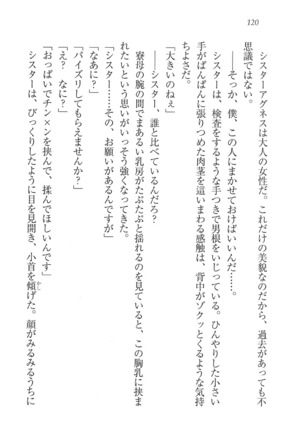 120
シスターアグネスは大人の女性だ。これだけの美貌なのだから、過去があっても不
思議ではない。
――そっか、僕、この人にまかせておけばいいんだ……。
シスターは、検査をするような手つきで男根をいじっている。ひんやりした小さい
手がぱんぱんに張りつめた肉茎を這いまわる感触は、背中がゾクッとくるような気持
ちよさだ。
「大きいのねぇ」
――シスター、誰と比べているんだろ？
寮母の腕の間でまあるい乳房がたぷたぷと揺れるのを見ていると、この胸乳に挟ま
れたいという思いがいっそう強くなってきた。
「シスター……その、お願いがあるんですが」
「なあに？」
「パイズリしてもらえませんか？」
「え？　なに？」
「おっぱいでチン×ンを挟んで、揉んでほしいんです」
シスターは、びっくりしたように目を見開き、小首を傾げた。顔がみるみるうちに
かし